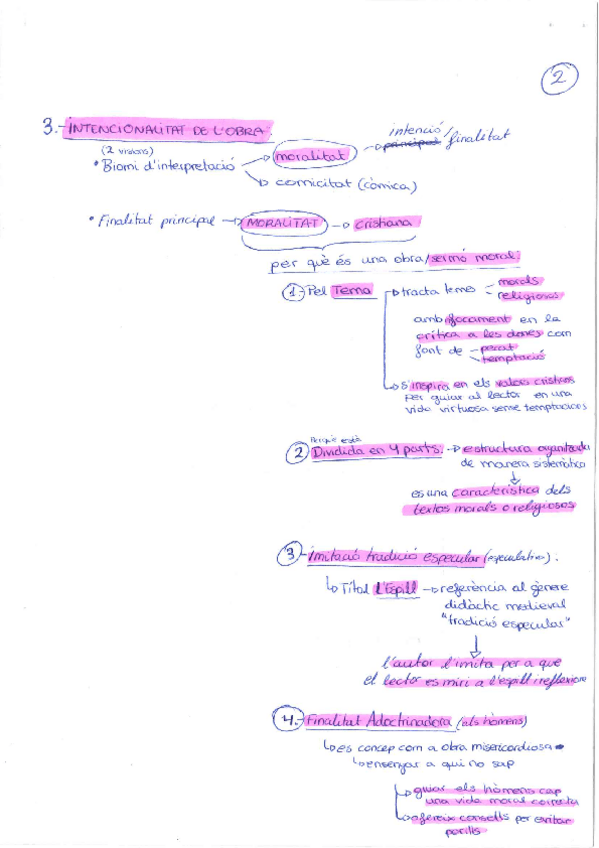 2
3.- INTENCIONALITAT DE L'OBRA.
(2 visions)
• Biomi d'interpretació → moralitat → intenció/ principal finalitat
→ comicitat (còmica)
• Finalitat principal → MORALITAT → cristiana
per què és una obra/sermó moral:
1- Pel Tema → tracta temes – morals
– religiosos
amb focament en la
crítica a les dones com
font de – pecat
– temptació
→ s'inspira en els valors cristians
per guiar al lector en una
vida virtuosa sense temptacions
Perquè està
2 Dividida en 4 parts. → estructura organitzada
de manera sistemàtica
↓
és una característica dels
textos morals o religiosos
3- Imitació tradició especular (especulativa).
↳ Títol l'Espill → referència al gènere
didàctic medieval
"tradició especular"
↓
l'autor l'imita per a que
el lector es miri a l'espill i reflexione
4.- Finalitat Adoctrinadora (els hòmens)
↳ es concep com a obra misericordiosa •
↳ ensenyar a qui no sap
→ guiar els hòmens cap
una vida moral correcta
→ ofereix consells per evitar
perills